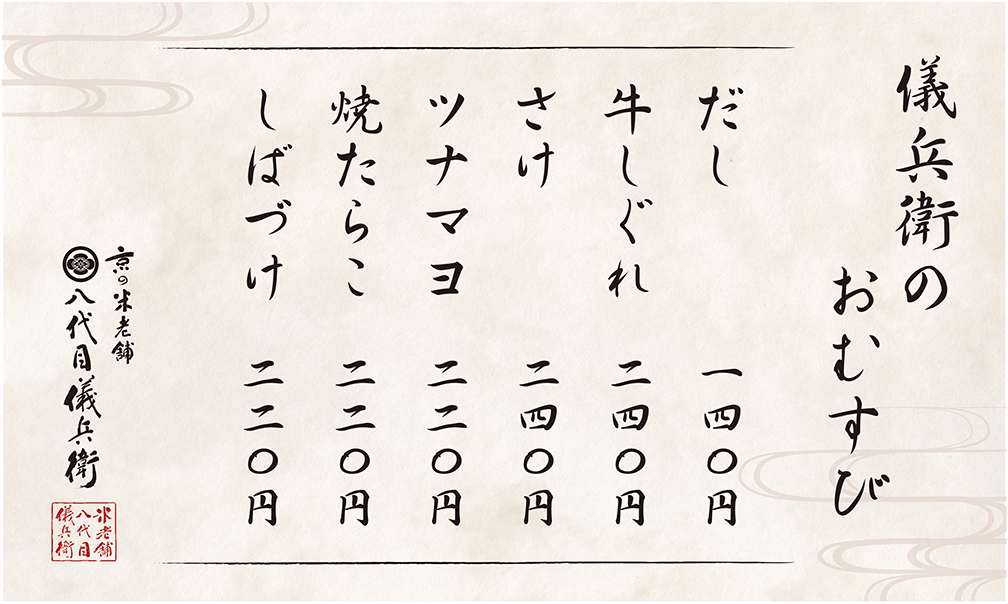 儀兵衛の
おむすび
だし 一四〇円
牛しぐれ 二四〇円
さけ 二四〇円
ツナマヨ 二二〇円
焼たらこ 二二〇円
しばづけ 二二〇円
京の米老舗
八代目儀兵衛
米老舗
八代目
儀兵衛